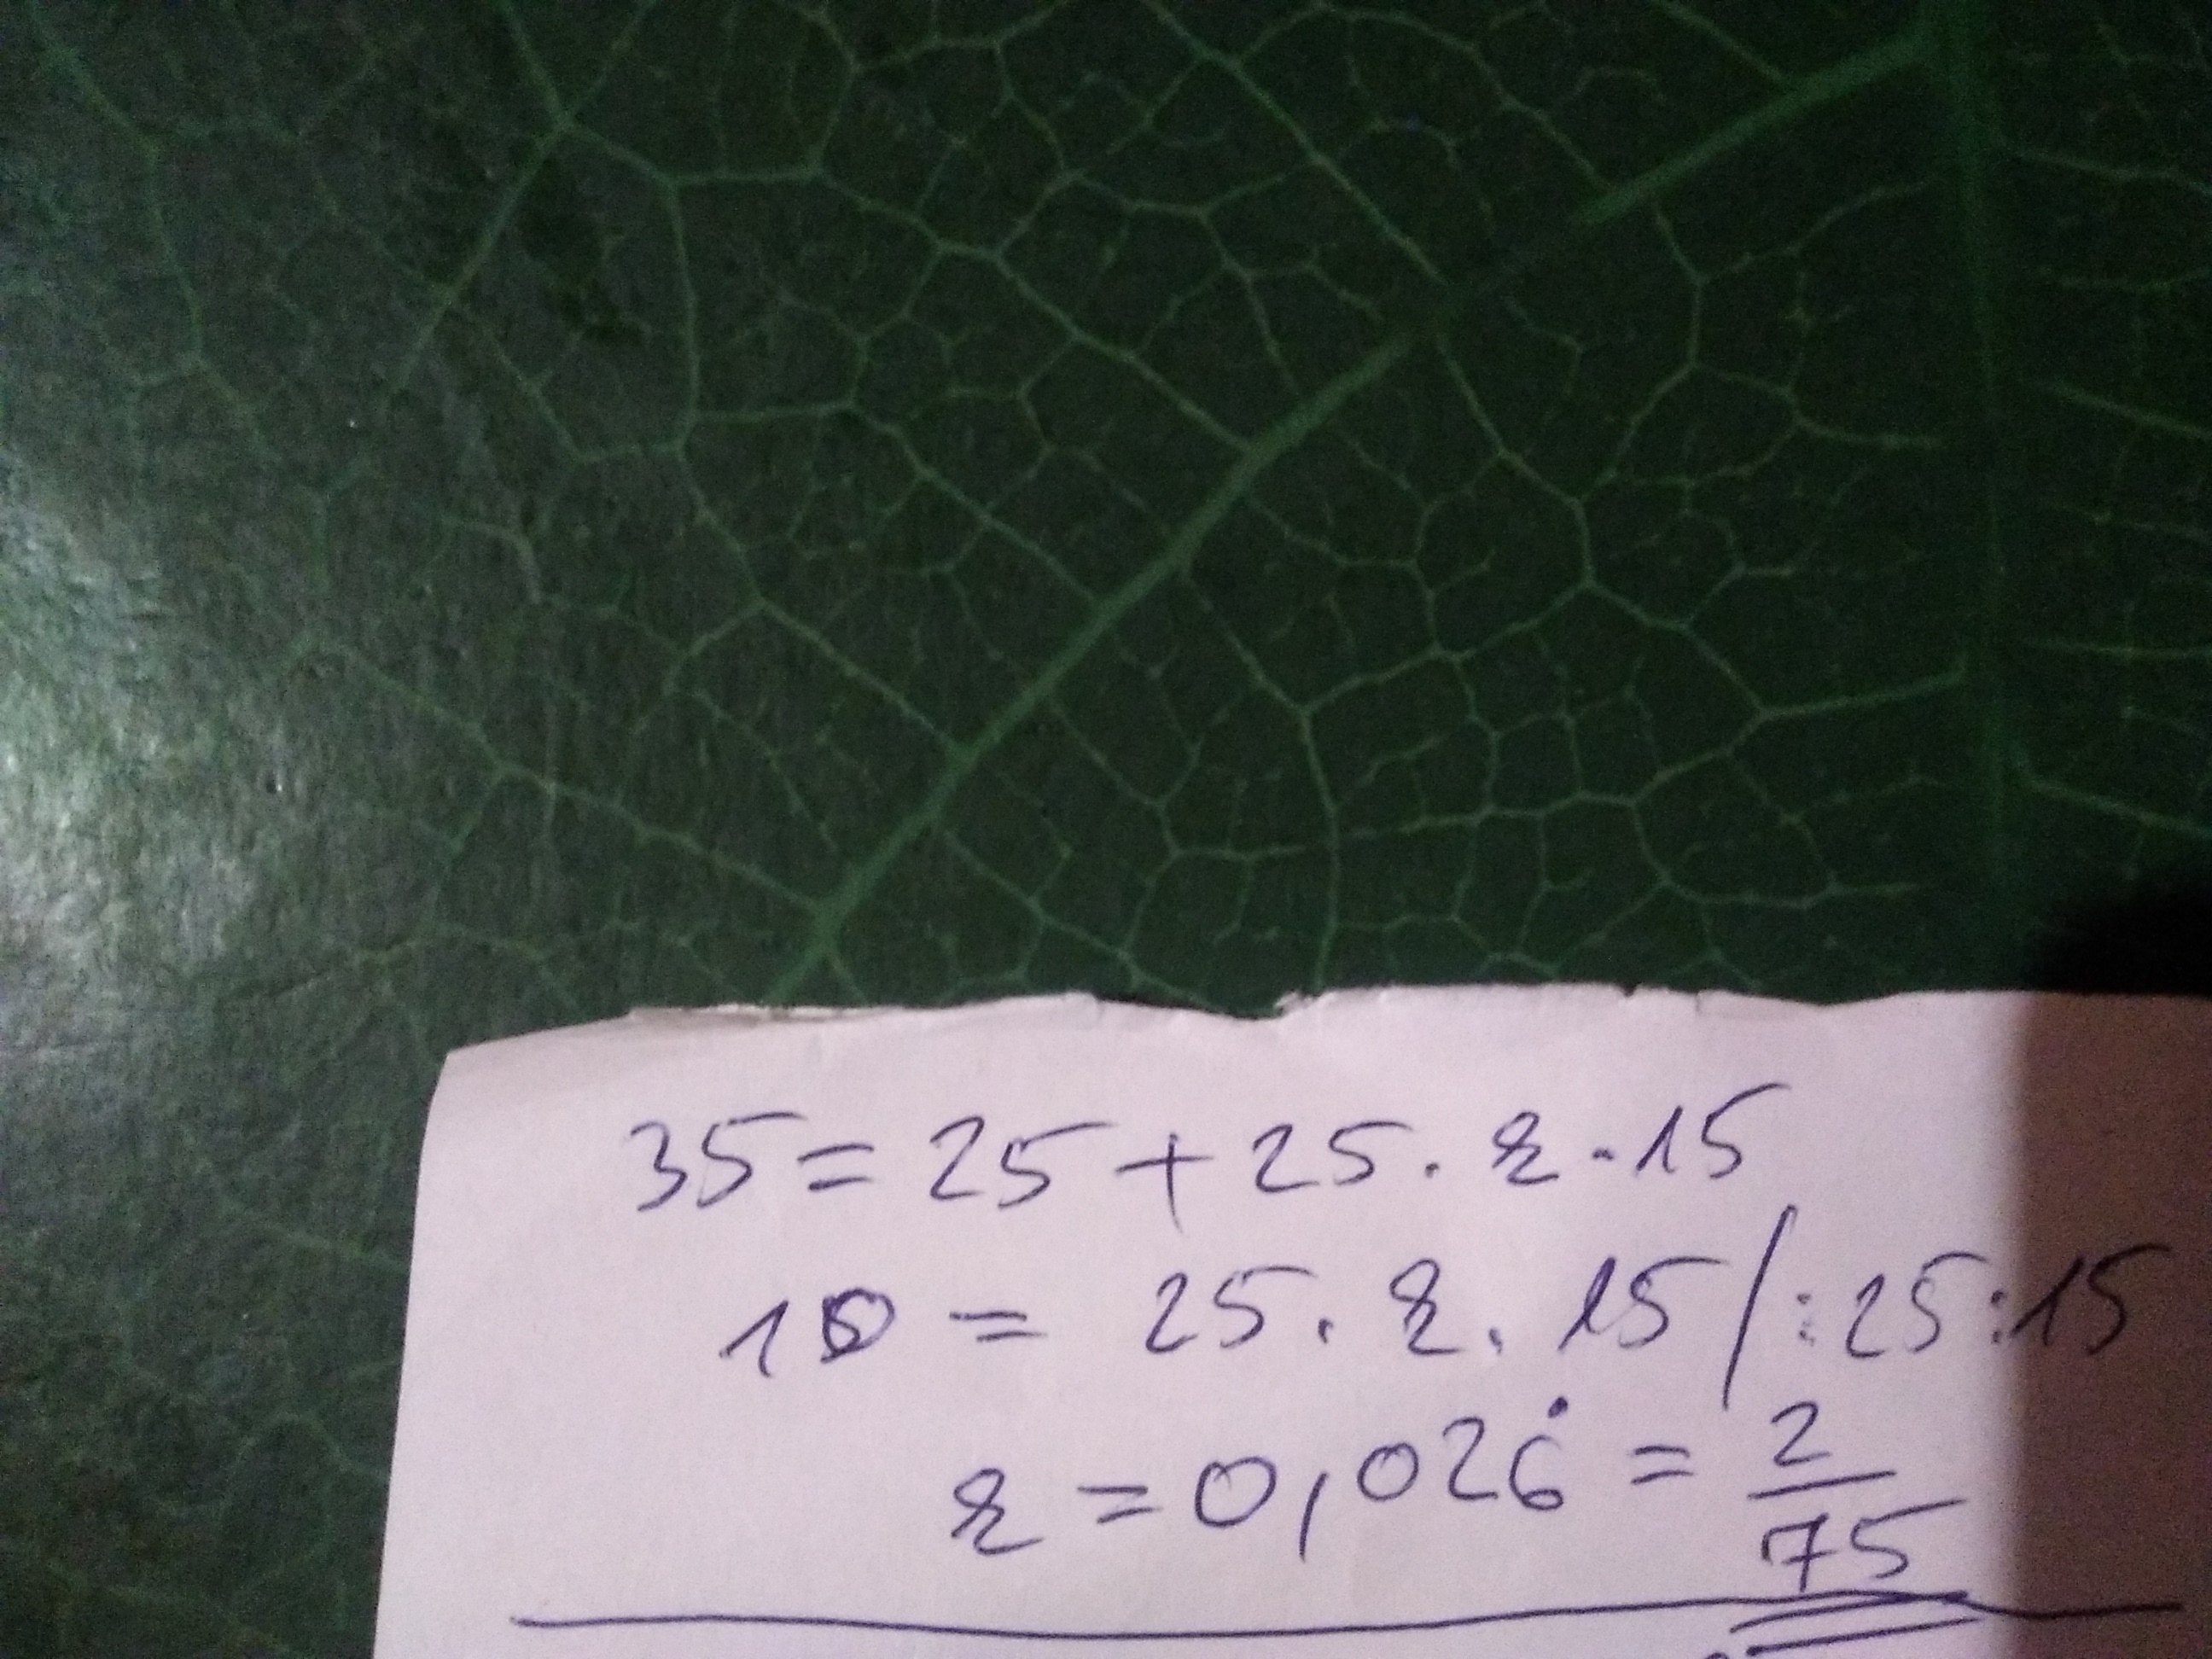 35 = 25 + 25 · r · 15
10 = 25 · r · 15 / : 25 : 15
r = 0,026̇ = 2/75